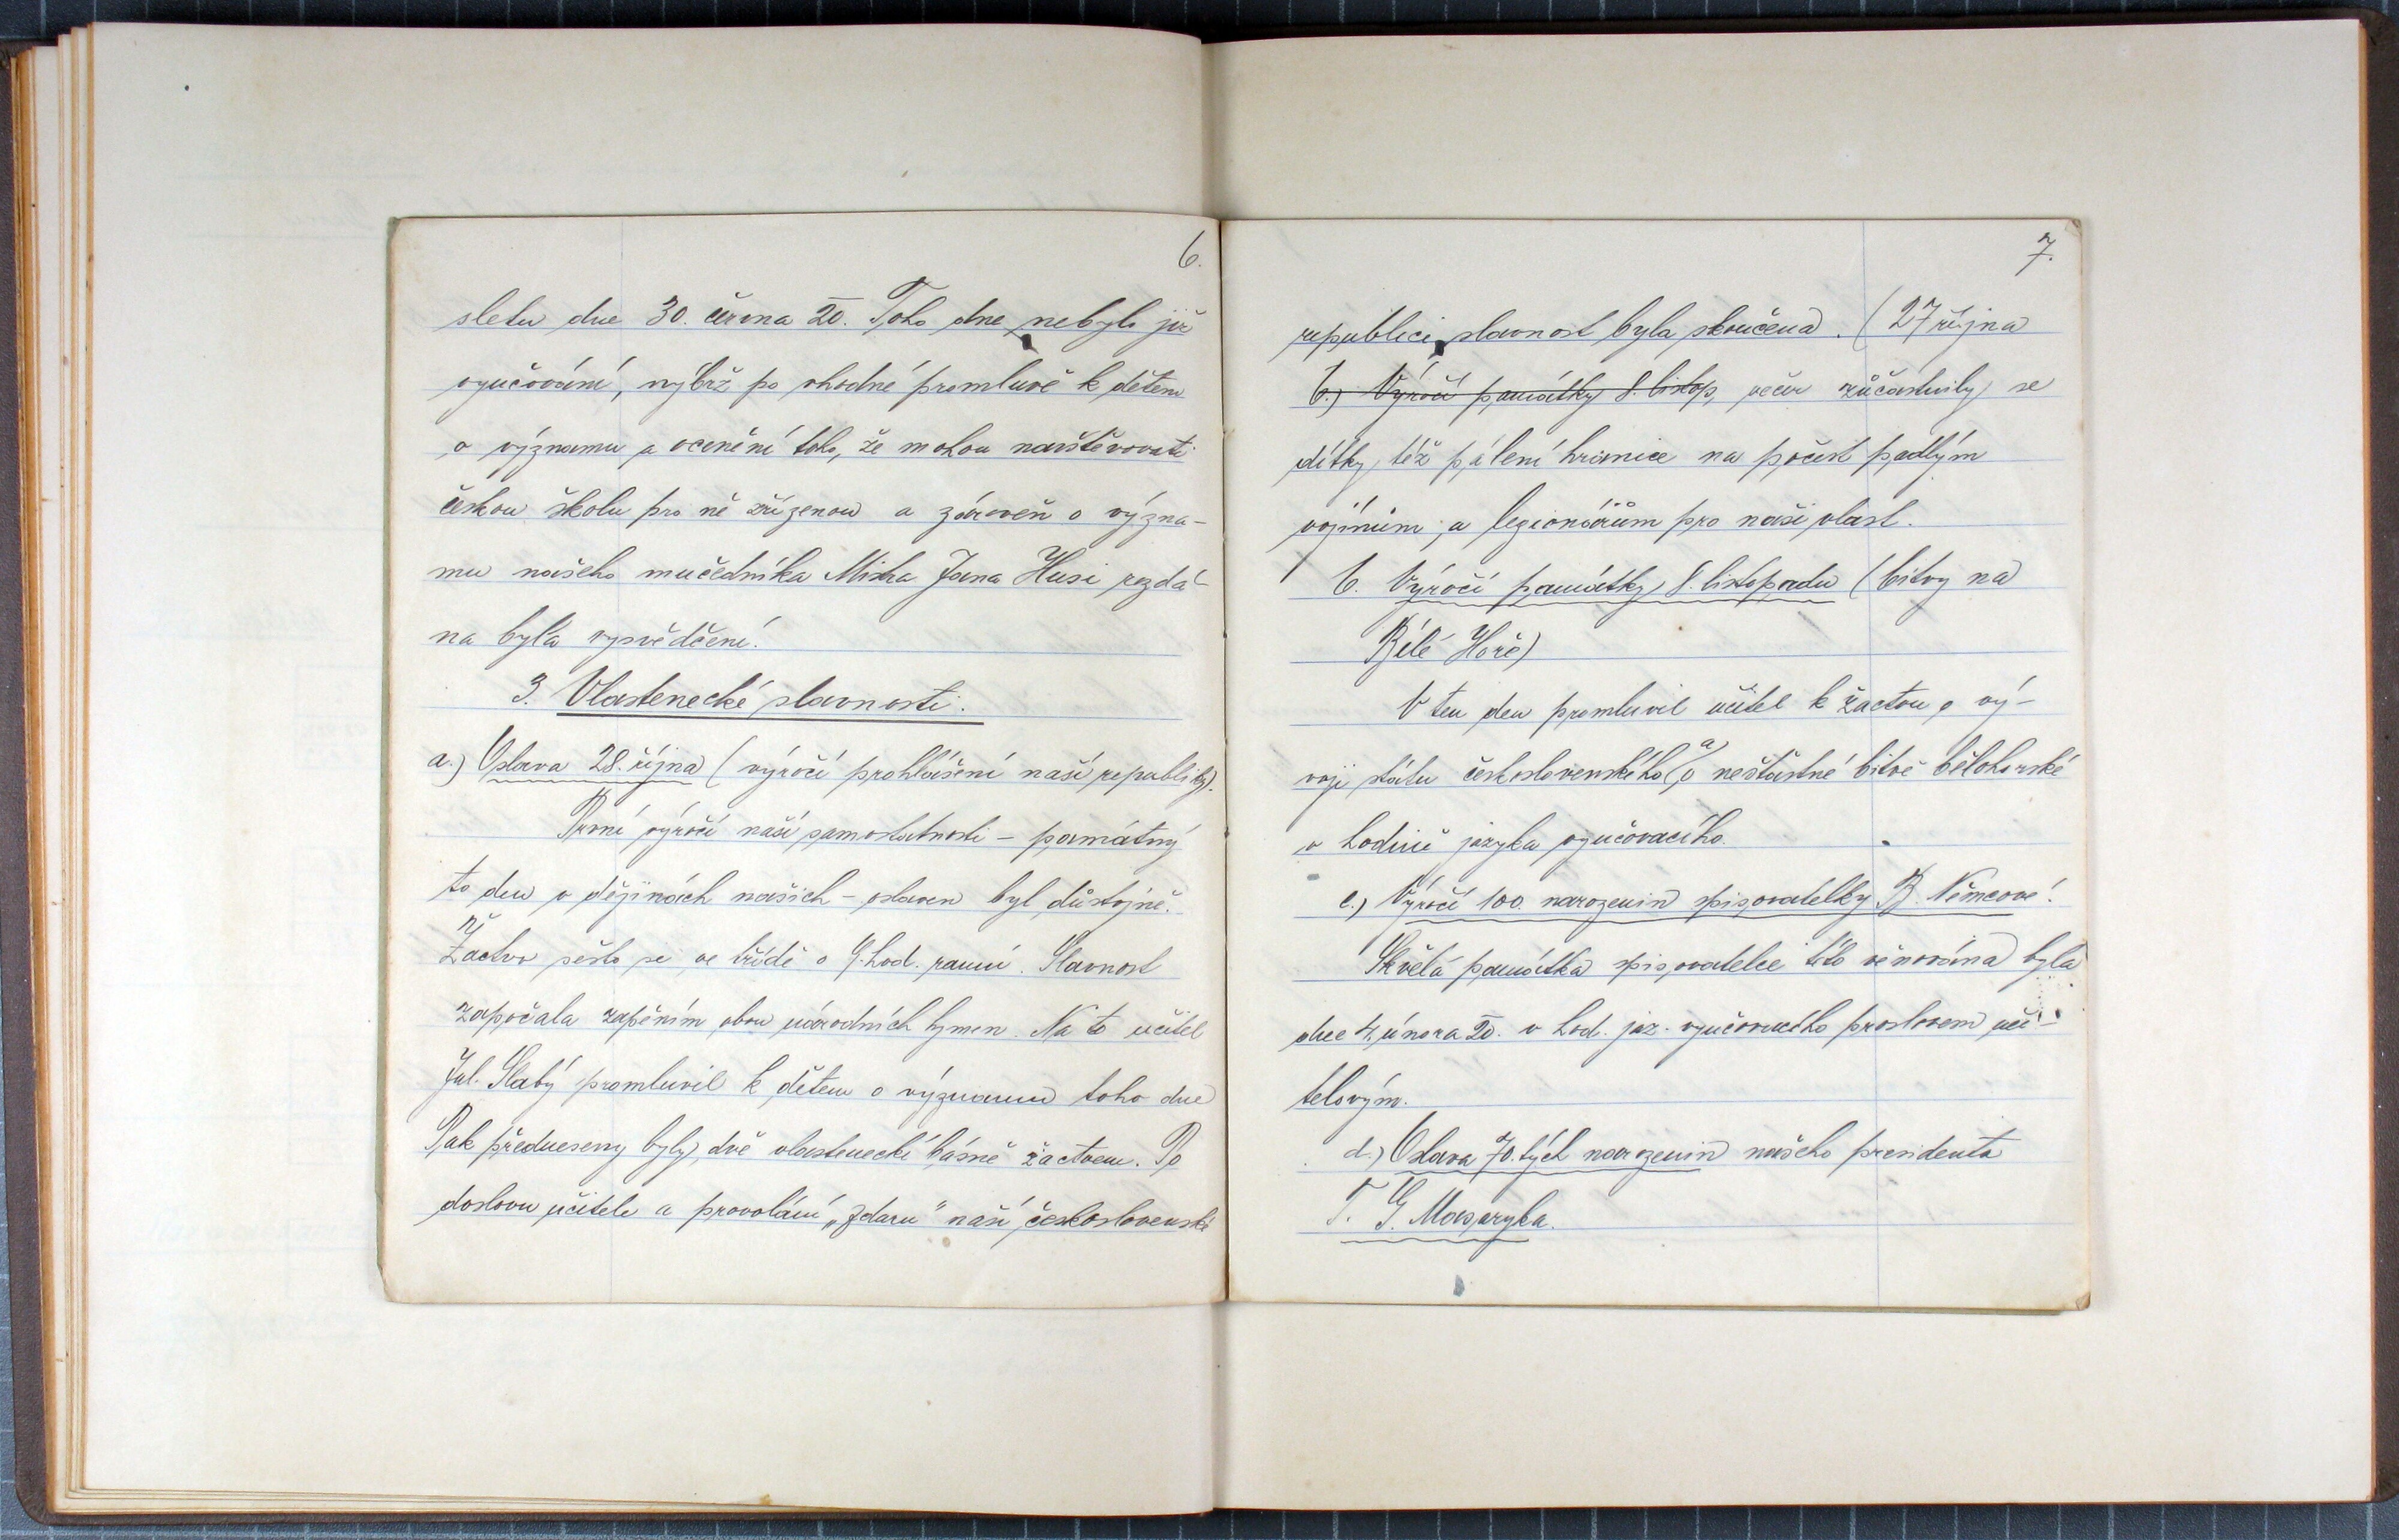 6.
sletu dne 30. června 20. Toho dne nebylo již
vyučování, nýbrž po vhodné promluvě k dětem
o významu a ocenění toho, že mohou navštěvovati
českou školu pro ně zřízenou a zároveň o význa-
mu našeho mučedníka Mistra Jana Husi rozdá-
na byla vysvědčení.
3. Vlastenecké slavnosti.
a.) Oslava 28. října (výročí prohlášení naší republiky).
První výročí naší samostatnosti - památný
to den v dějinách našich - oslaven byl důstojně.
Žactvo sešlo se ve třídě o 9. hod. ranní. Slavnost
započala zapěním obou národních hymen. Na to učitel
Jul. Slabý promluvil k dětem o významu toho dne
Pak předneseny byly dvě vlastenecké básně žactvem. Po
doslovu učitele a provolání „Zdaru" naší československé
7.
republici slavnost byla skončena. (27 října
b.) Výročí památky 8. listop, večer zůčastnily se
dítky též pálení hranice na počest padlým
vojínům a legionářům pro naši vlast.
b. Výročí památky 8. listopadu (bitvy na
Bílé Hoře)
V ten den promluvil učitel k žactvu o vý-
voji státu československého a o nešťastné bitvě bělohorské
v hodině jazyka vyučovacího.
c.) Výročí 100. narozenin spisovatelky B. Němcové.
Skvělá památka spisovatelce této věnována byla
dne 4. února 20. v hod. jaz. vyučovacího proslovem uči-
telovým.
d.) Oslava 70.tých narozenin našeho presidenta
T. G. Masaryka.